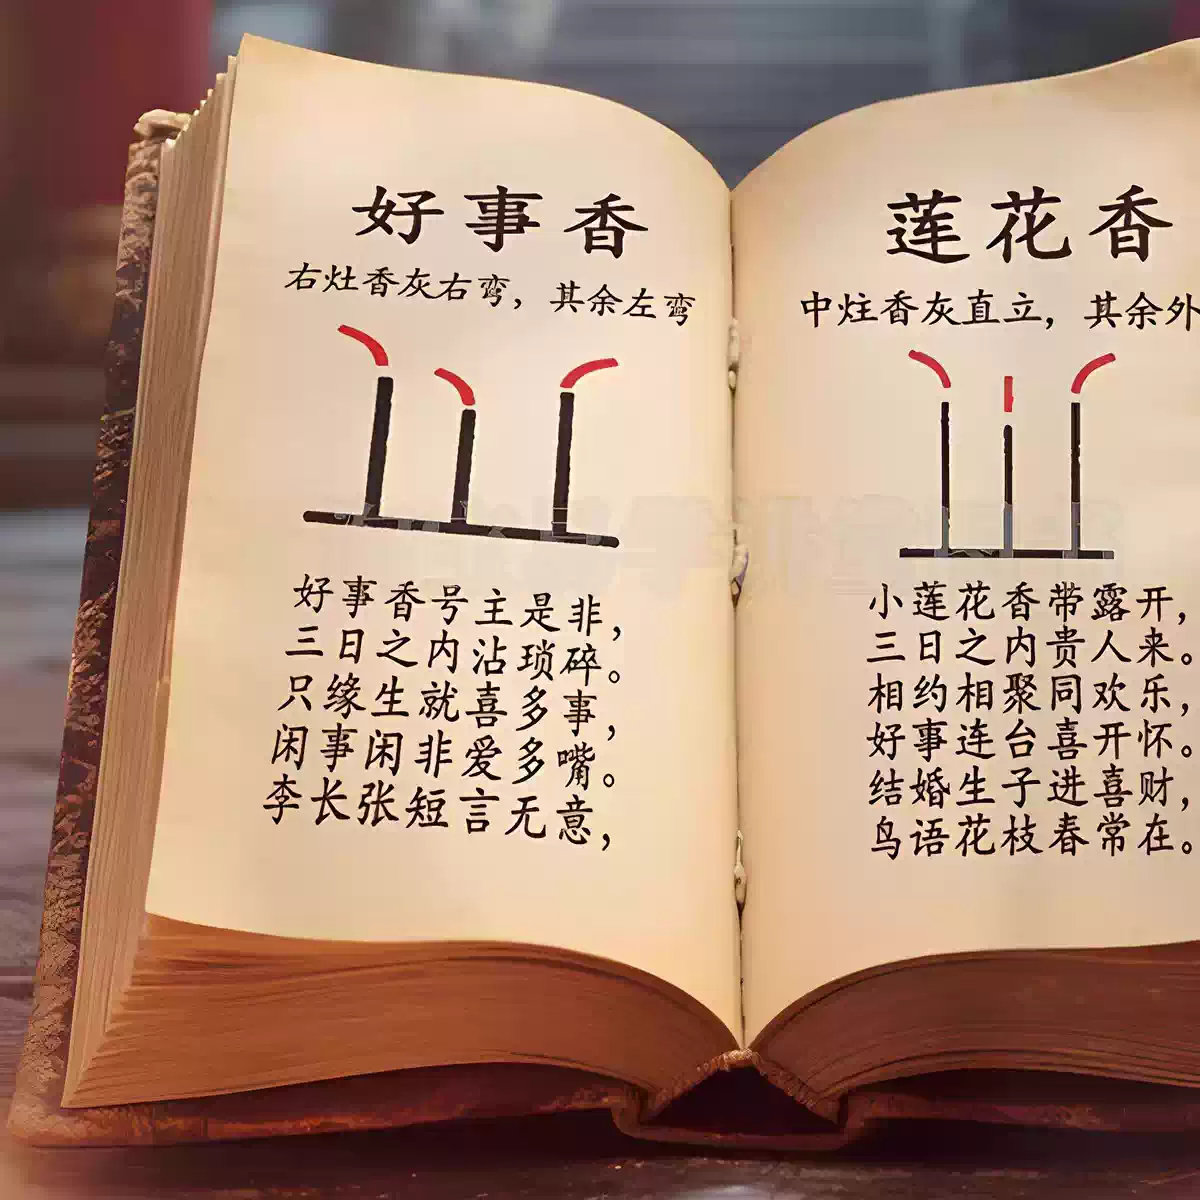 好事香
右灶香灰右弯，其余左弯
好事香号主是非，
三日之内沾琐碎。
只缘生就喜多事，
闲事闲非爱多嘴。
李长张短言无意，
莲花香
中炷香灰直立，其余外
小莲花香带露开，
三日之内贵人来。
相约相聚同欢乐，
好事连台喜开怀。
结婚生子进喜财，
鸟语花枝春常在。